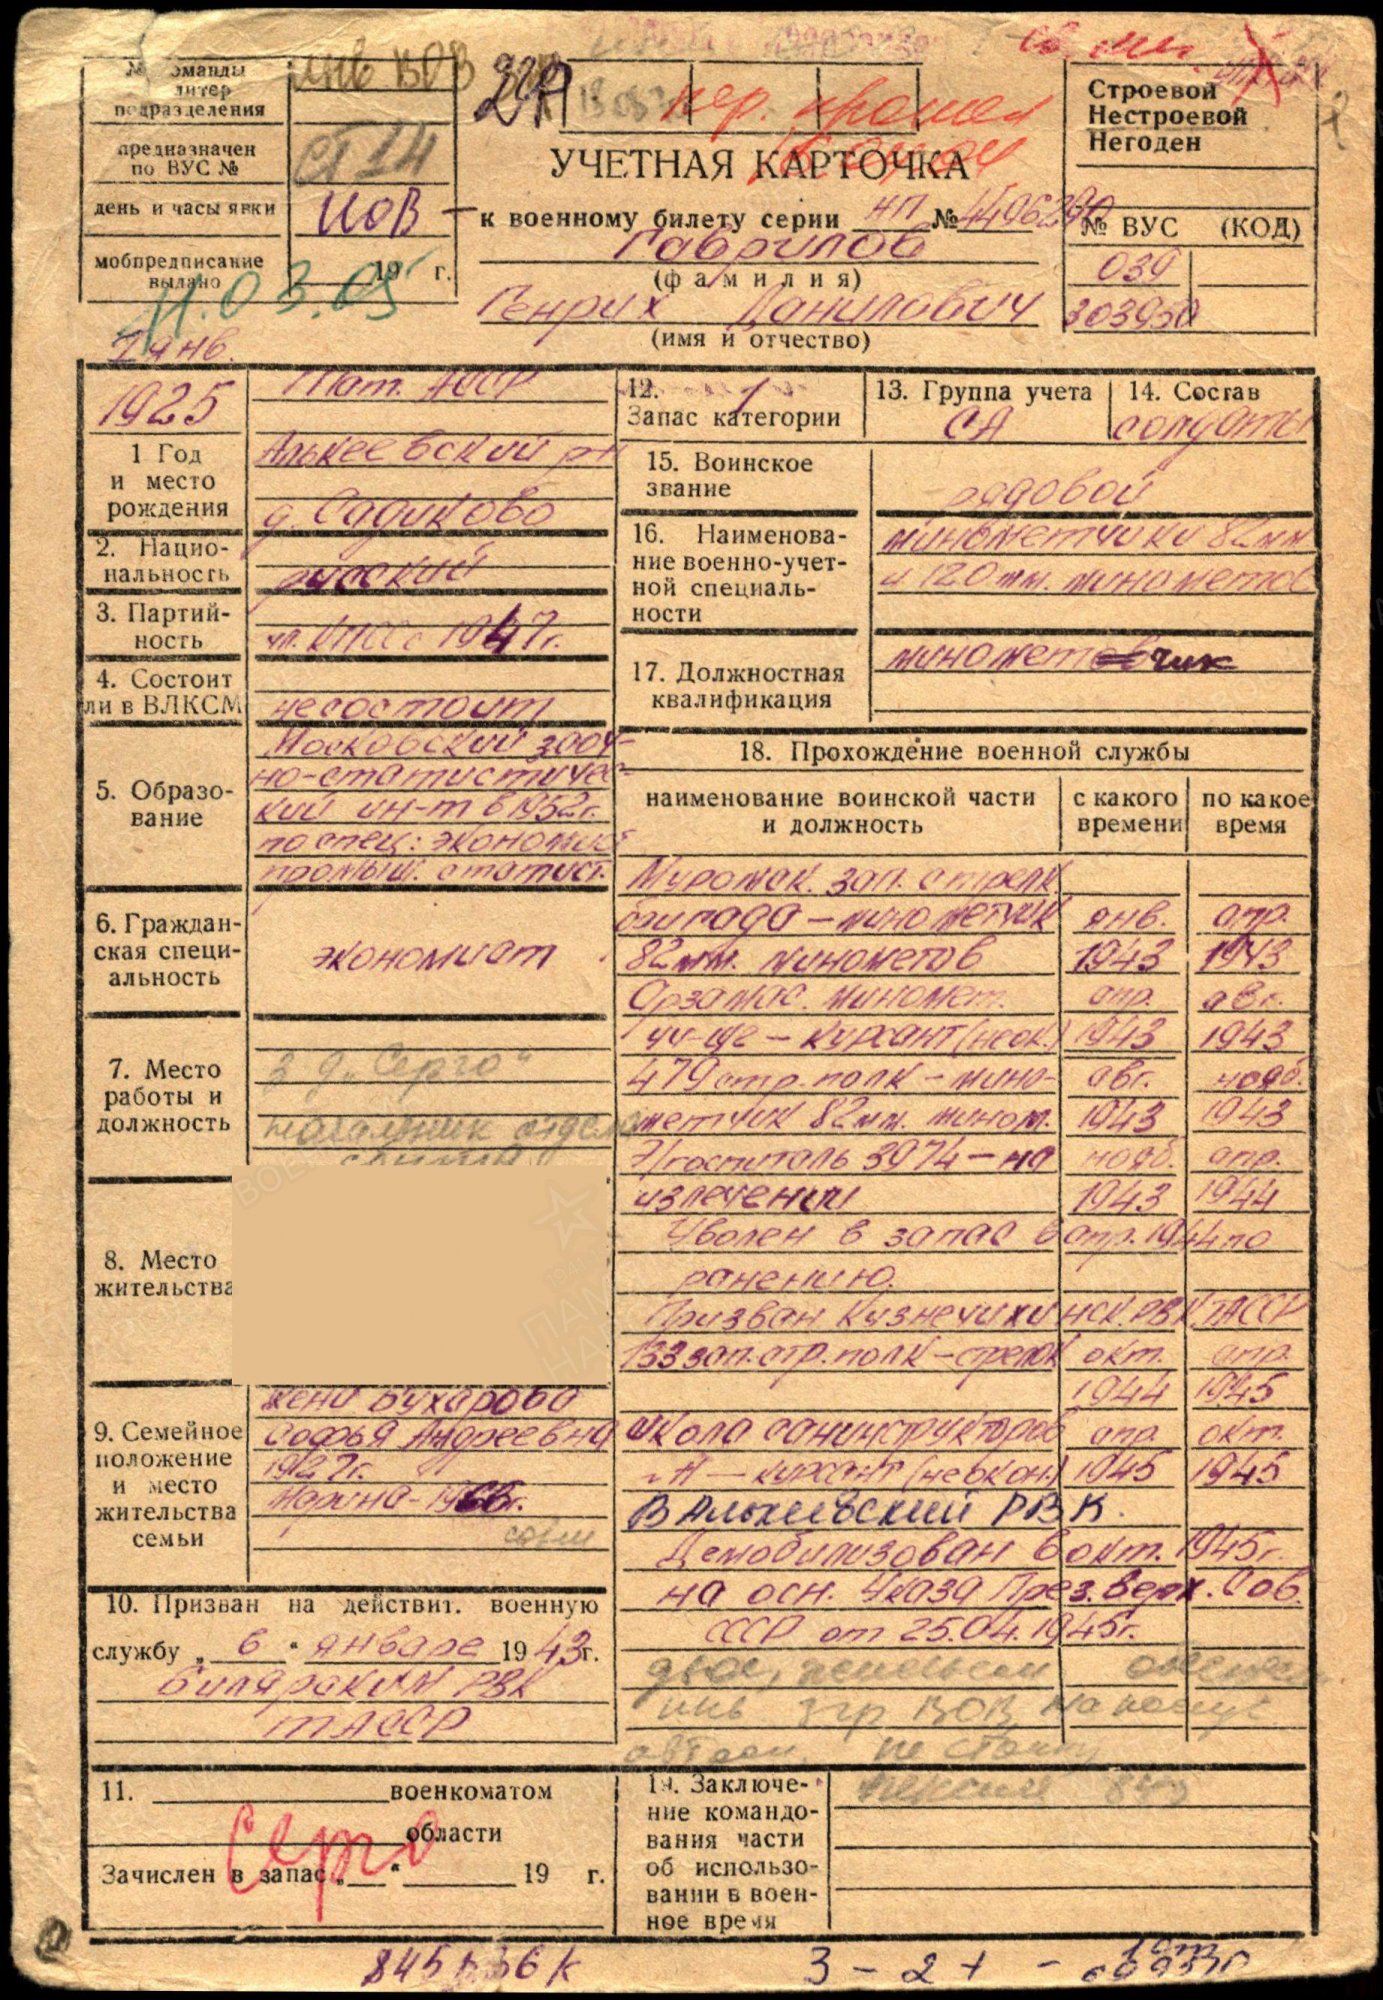 инв ВОВ
№ команды
литер
подразделения
предназначен
по ВУС №
ст 14
день и часы явки
ИОВ
мобпредписание
выдано
19 г.
11.03.05
2 янв.
УЧЕТНАЯ КАРТОЧКА
к военному билету серии НП №
Гаврилов
(фамилия)
Генрих Данилович
(имя и отчество)
Строевой
Нестроевой
Негоден
№ ВУС (КОД)
039
303950
1925
1 Год
и место
рождения
Тат. АССР
Алькеевский р-н
д. Садиково
2. Нацио-
нальность
русский
3. Партий-
ность
чл. КПСС с 1947г.
4. Состоит
ли в ВЛКСМ
не состоит
5. Образо-
вание
Московский заоч-
но-статистичес-
кий ин-т в 1952г.
по спец: экономист
промыш. статист.
6. Граждан-
ская специ-
альность
экономист
7. Место
работы и
должность
з-д „Серго“
начальник отдела
8. Место
жительства
9. Семейное
положение
и место
жительства
семьи
жена Бухарова
Софья Андреевна
1927г.
Марина-1966г.
10. Призван на действит. военную
службу „6“ января 1943г.
Билярским РВК
ТАССР
11. военкоматом
области
Зачислен в запас „ “ 19 г.
Серго
12.
Запас категории
1
13. Группа учета
СА
14. Состав
солдаты
15. Воинское
звание
рядовой
16. Наименова-
ние военно-учет-
ной специаль-
ности
минометчики 82мм
и 120мм. минометов
17. Должностная
квалификация
минометчик
18. Прохождение военной службы
наименование воинской части
и должность
с какого
времени
по какое
время
Муромск. зап. стрелк.
бригада – минометчик янв. апр.
82мм. минометов 1943 1943
Арзамас. миномет. апр. авг.
уч-ще – курсант (неок.) 1943 1943
479 стр. полк – мино- авг. нояб.
метчик 82мм. мином. 1943 1943
Э/госпиталь 3974 – на нояб. апр.
излечении 1943 1944
Уволен в запас в апр. 1944 по
ранению.
Призван Кузнечихинск. РВК ТАССР
133 зап. стр. полк – стрелок окт. апр.
1944 1945
Школа санинструкторов апр. окт.
курсант (неокон.) 1945 1945
В Алькеевский РВК.
Демобилизован в окт. 1945г.
на осн. Указа През. Верх. Сов.
СССР от 25.04.1945г.
инв 2гр ВОВ
19. Заключе-
ние командо-
вания части
об использо-
вании в воен-
ное время
3 – 2 +